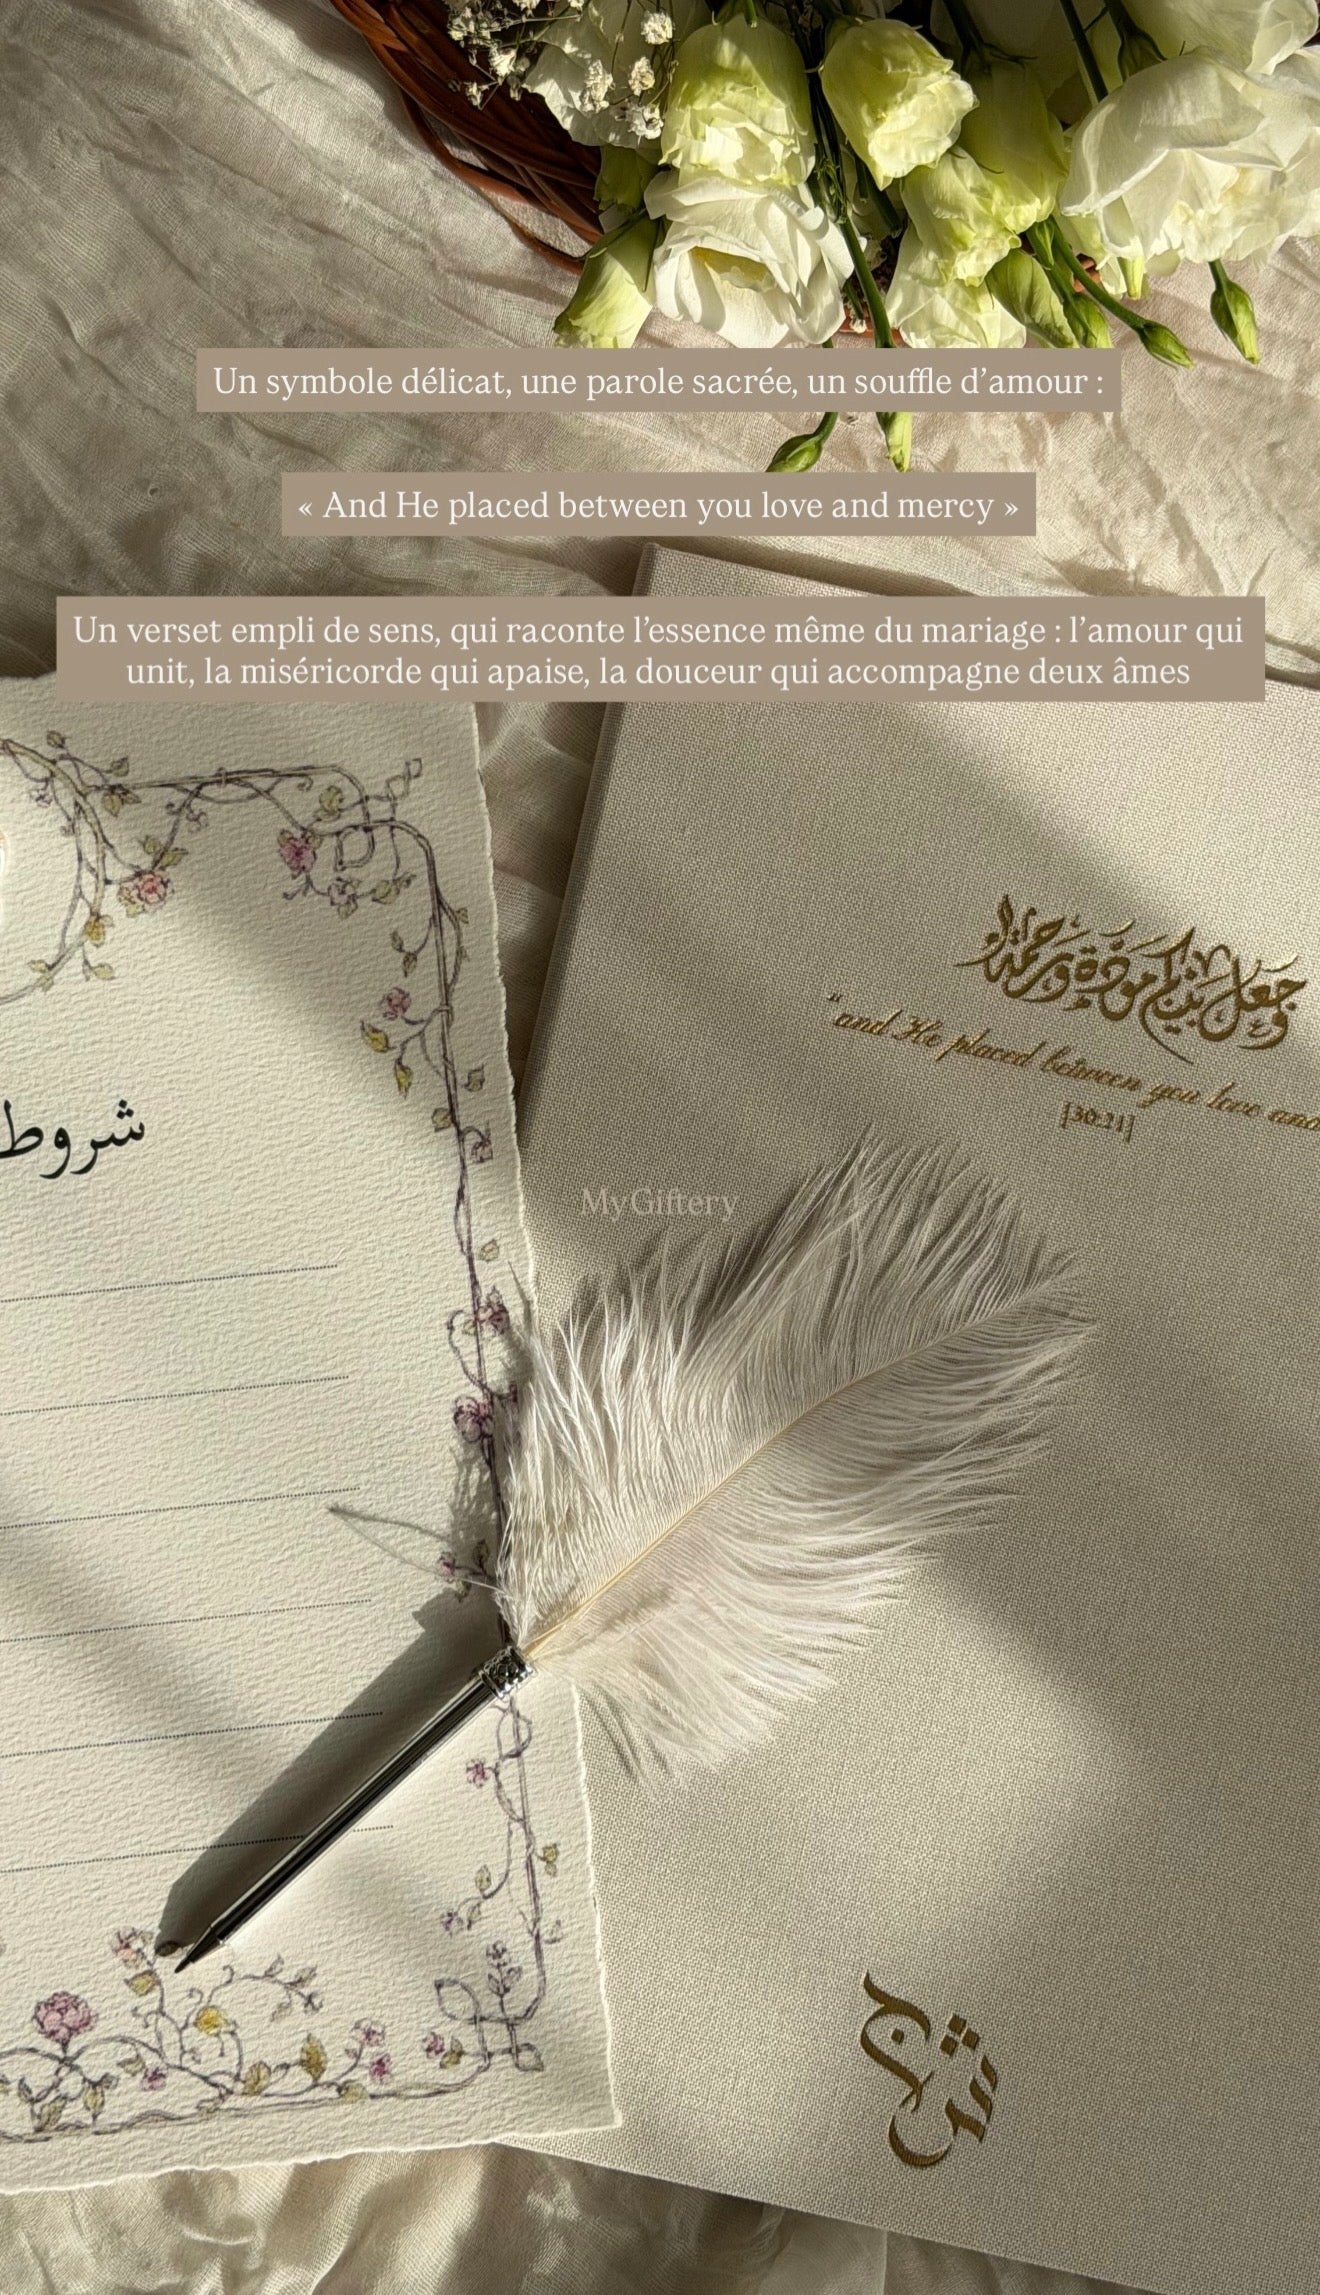 Un symbole délicat, une parole sacrée, un souffle d’amour :
« And He placed between you love and mercy »
Un verset empli de sens, qui raconte l’essence même du mariage : l’amour qui
unit, la miséricorde qui apaise, la douceur qui accompagne deux âmes
وجعل بينكم مودة ورحمة
“and He placed between you love and
[30:21]
شروط
MyGiftery